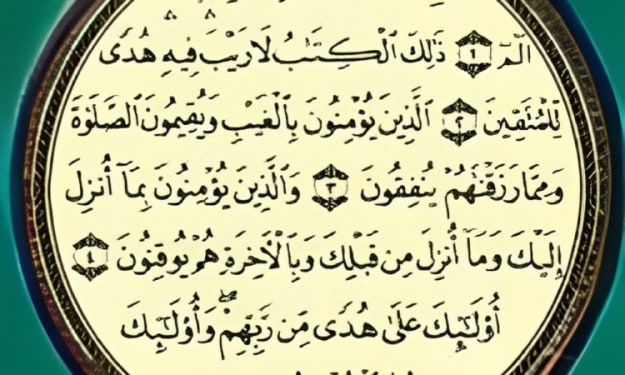 الٓمٓ ١ ذَٰلِكَ ٱلْكِتَٰبُ لَا رَيْبَ ۛ فِيهِ ۛ هُدًى
لِّلْمُتَّقِينَ ٢ ٱلَّذِينَ يُؤْمِنُونَ بِٱلْغَيْبِ وَيُقِيمُونَ ٱلصَّلَوٰةَ
وَمِمَّا رَزَقْنَٰهُمْ يُنفِقُونَ ٣ وَٱلَّذِينَ يُؤْمِنُونَ بِمَآ أُنزِلَ
إِلَيْكَ وَمَآ أُنزِلَ مِن قَبْلِكَ وَبِٱلْأَخِرَةِ هُمْ يُوقِنُونَ ٤
أُو۟لَٰٓئِكَ عَلَىٰ هُدًى مِّن رَّبِّهِمْ ۖ وَأُو۟لَٰٓئِكَ